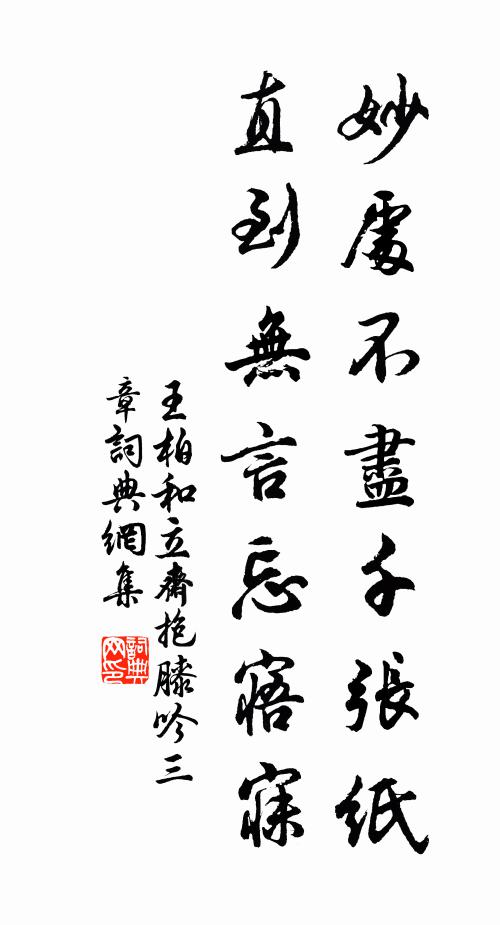 妙處不盡千張紙
直到無言忘寤寐
王柏和立齋抱膝吟三
章詞典網集
詞典
网印